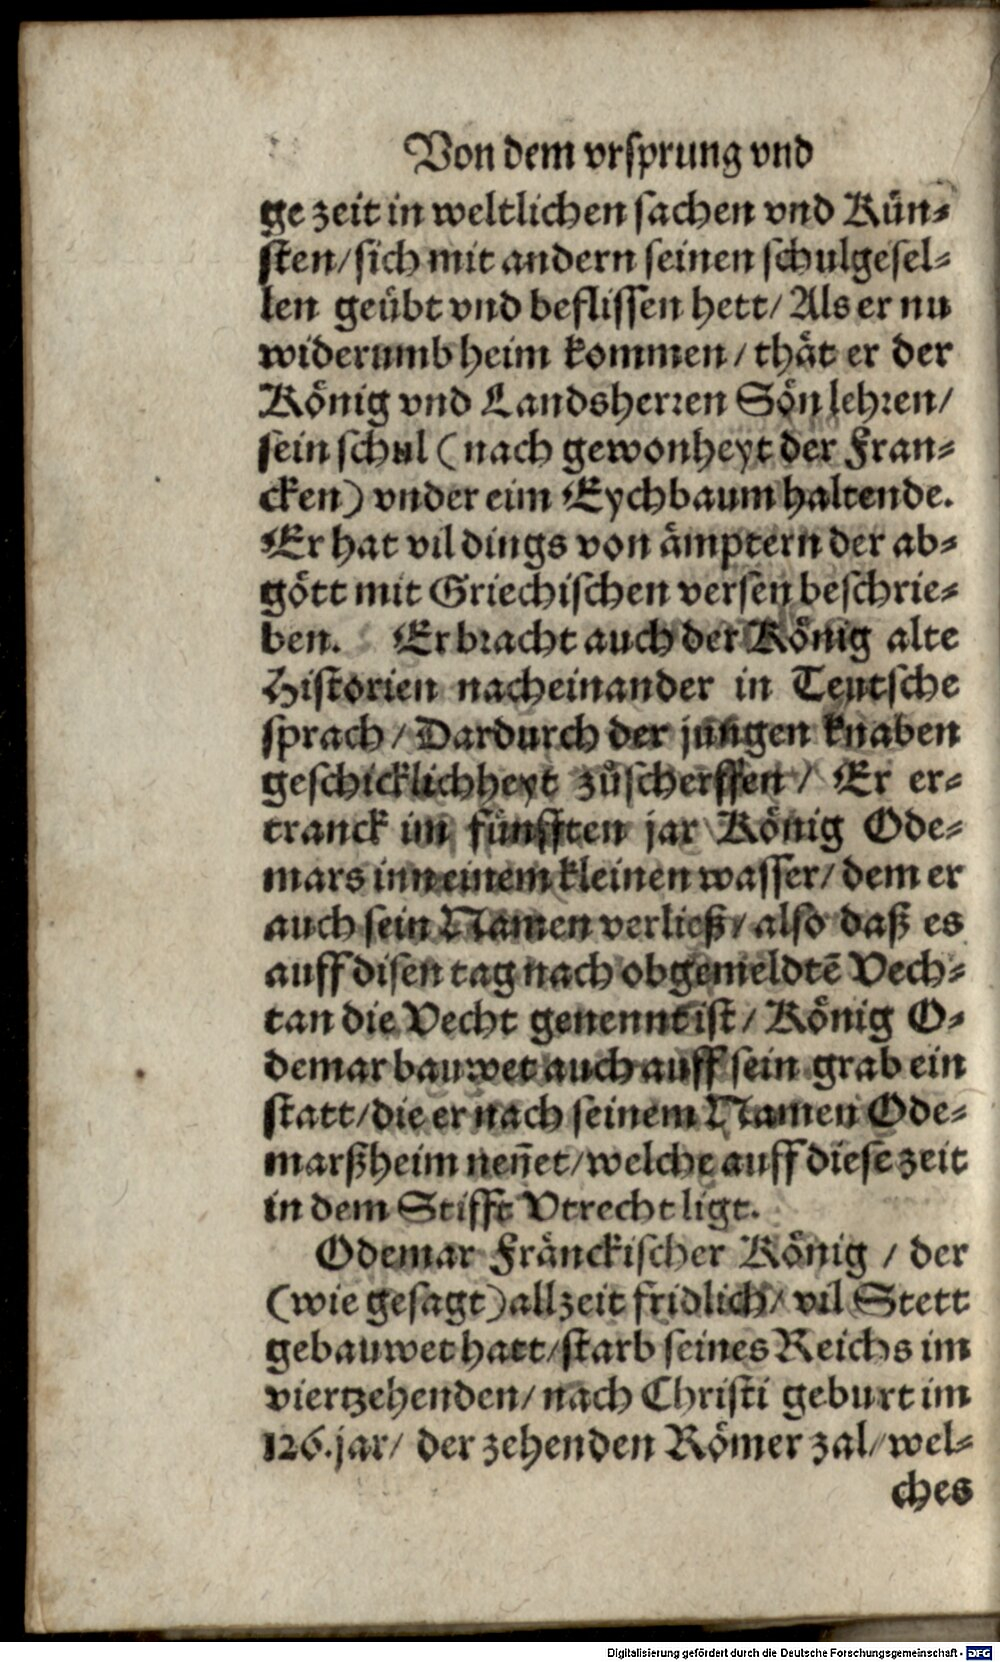 Von dem vrsprung vnd
ge zeit in weltlichen sachen vnd Kün-
sten/ sich mit andern seinen schulgesel-
len geübt vnd beflissen hett/ Als er nu
widerumb heim kommen/ thät er der
König vnd Landsherren Sön lehren/
sein schul (nach gewonheyt der Fran-
cken) vnder eim Eychbaum haltende.
Er hat vil dings von ämptern der ab-
gött mit Griechischen versen beschrie-
ben. Er bracht auch der König alte
Historien nacheinander in Teutsche
sprach/ Dardurch der jungen knaben
geschicklichheyt zůscherffen/ Er er-
tranck im fünfften jar König Ode-
mars inn einem kleinen wasser/ dem er
auch sein Namen verließ/ also daß es
auff disen tag nach obgemeldtē Vech-
tan die Vecht genennt ist/ König O-
demar bauwet auch auff sein grab ein
statt/ die er nach seinem Namen Ode-
marßheim neñet/ welche auff diese zeit
in dem Stifft Vtrecht ligt.
Odemar Fränckischer König/ der
(wie gesagt) allzeit fridlich/ vil Stett
gebauwet hatt/ starb seines Reichs im
viertzehenden/ nach Christi geburt im
126. jar/ der zehenden Römer zal/ wel-
ches
Digitalisierung gefördert durch die Deutsche Forschungsgemeinschaft - DFG